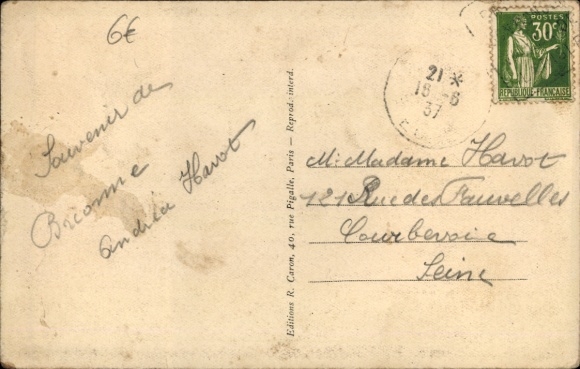 6€
Souvenir de
Brionne
Andréa Havot
Editions R. Caron, 40, rue Pigalle, Paris — Reprod. interd.
21 *
16 - 6
37
POSTES
30c
REPUBLIQUE-FRANCAISE
M. Madame Havot
121 Rue des Fauvelles
Courbevoie
Seine